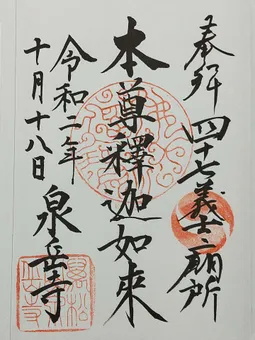 奉拝 四十七義士廟所
本尊釋迦如来
令和二年
十月十八日
泉岳寺